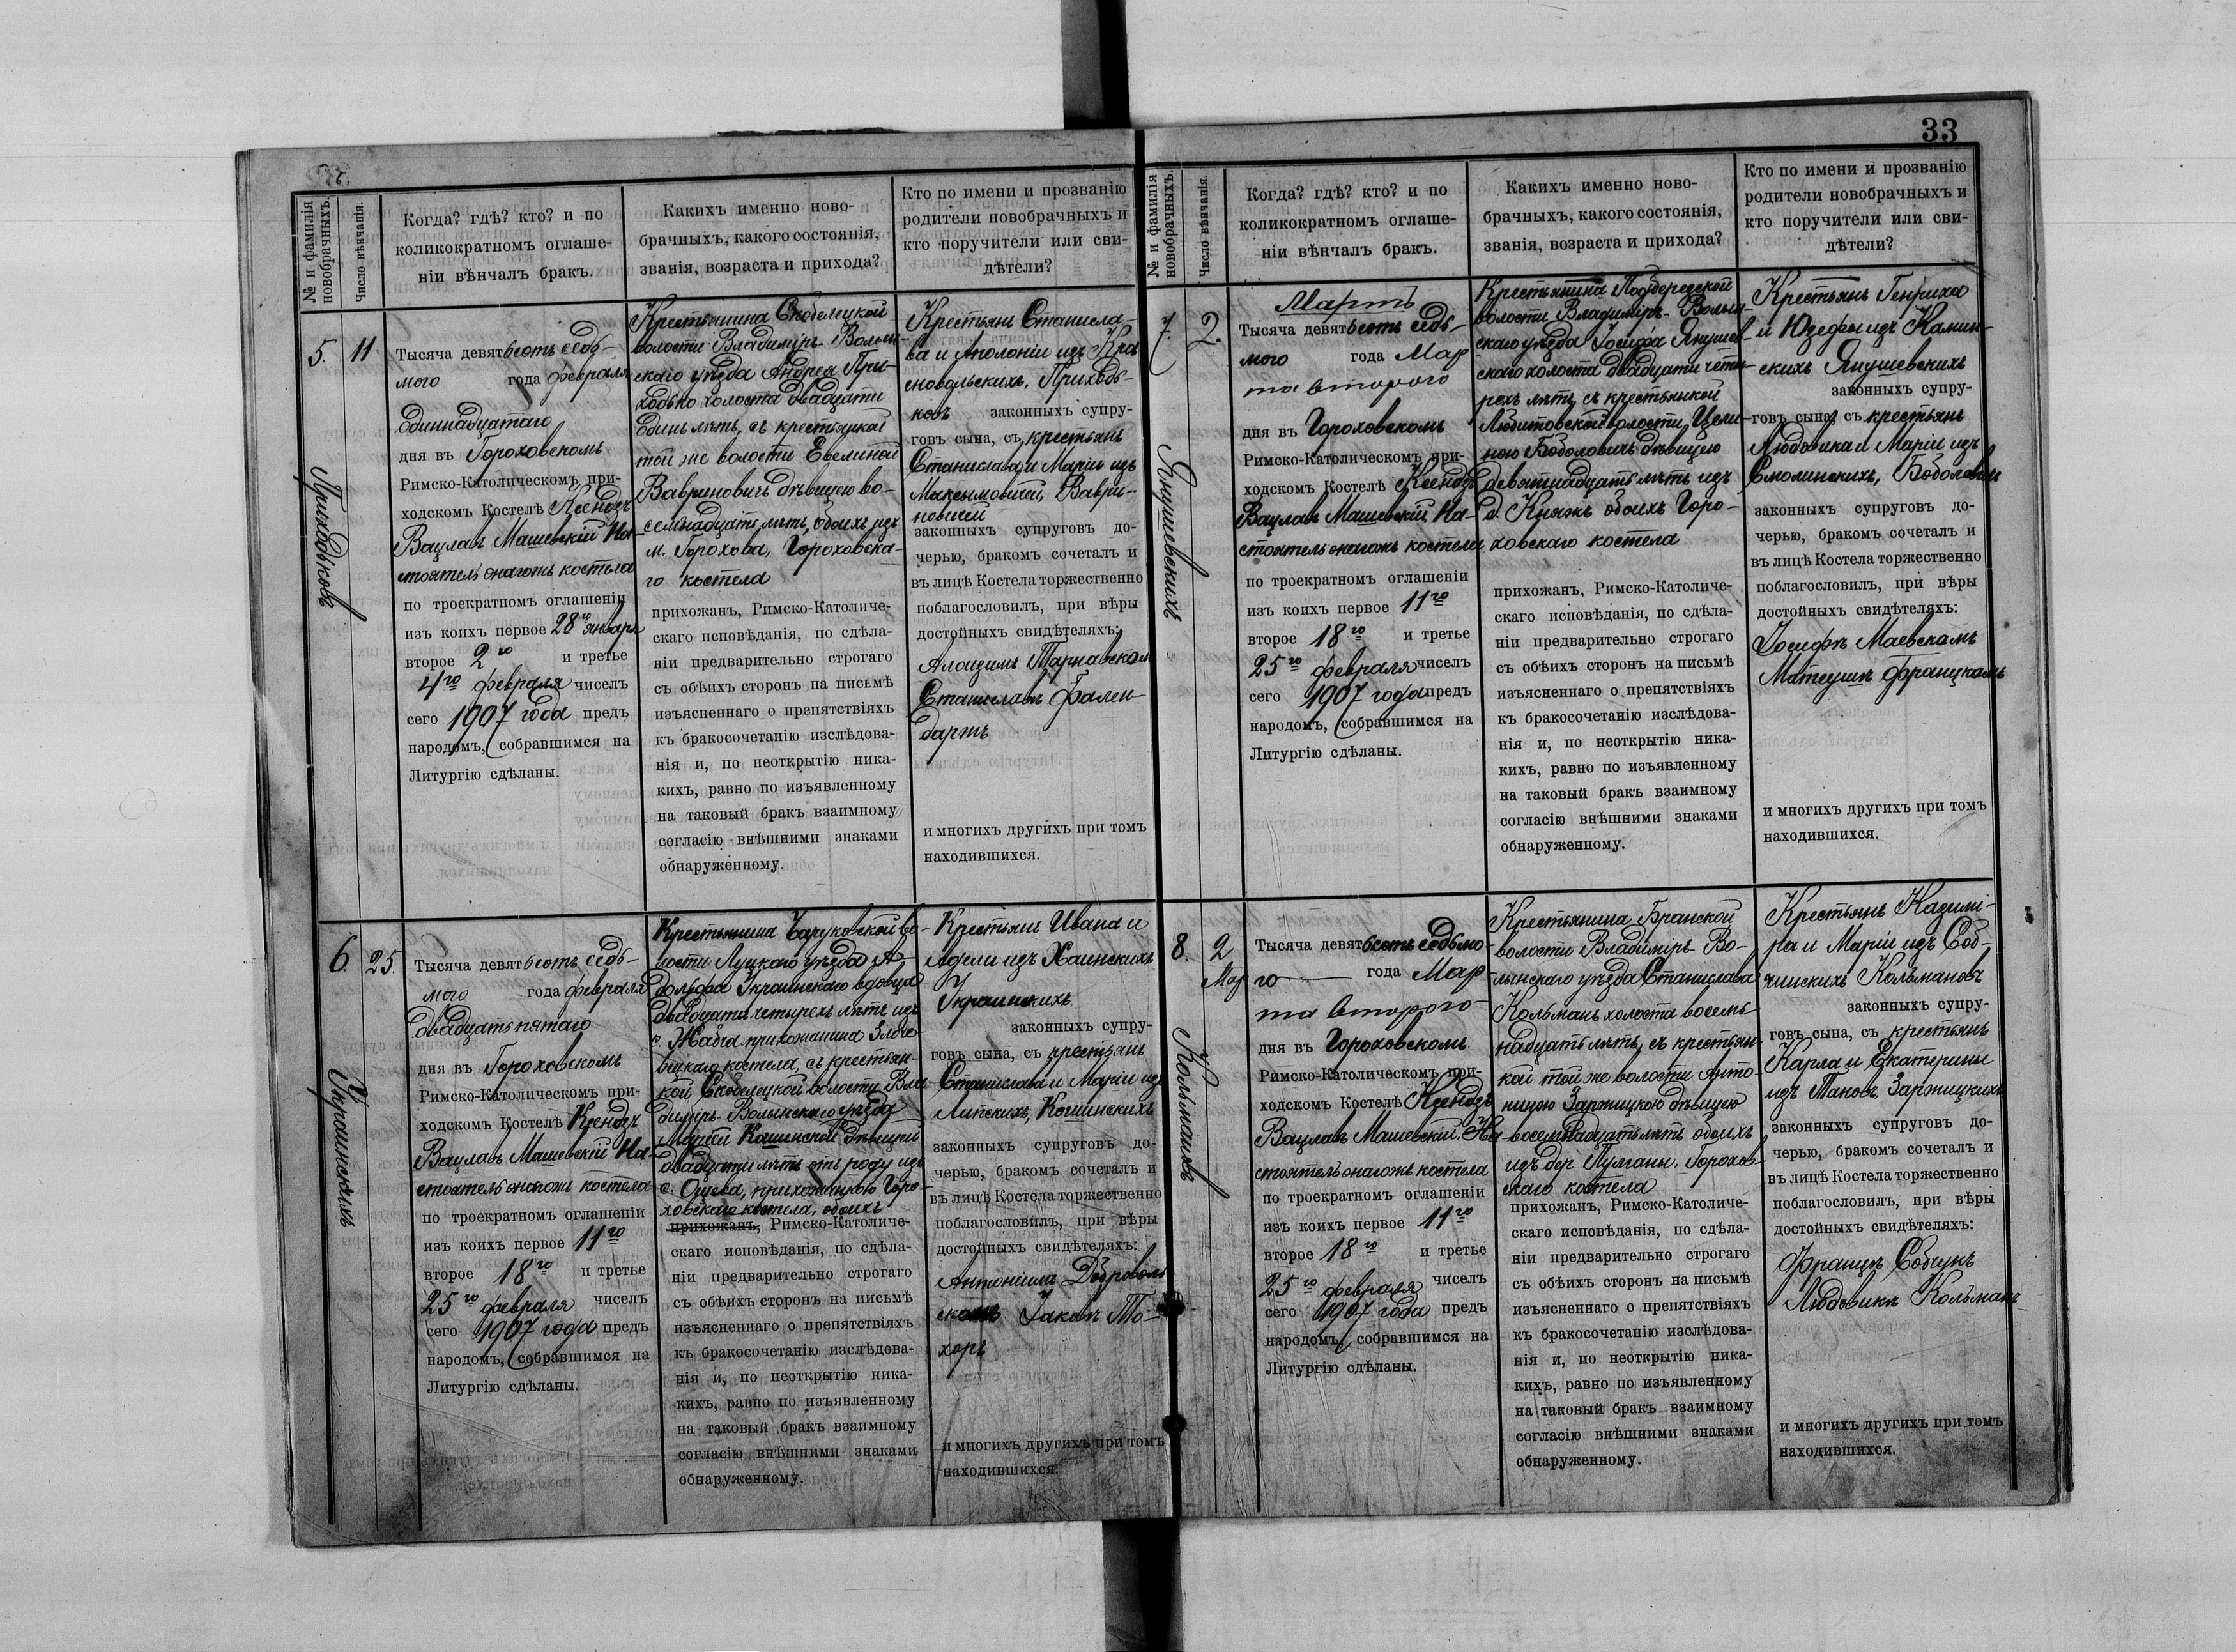 33
№ и фамилія новобрачныхъ.
Число вѣнчанія.
Когда? гдѣ? кто? и по
коликократномъ оглаше-
ніи вѣнчалъ бракъ.
Какихъ именно ново-
брачныхъ, какого состоянія,
званія, возраста и прихода?
Кто по имени и прозванію
родители новобрачныхъ и
кто поручители или сви-
дѣтели?
5.
11
Приходьковъ
Тысяча девятьсотъ седь-
мого года февраля
Одиннадцатаго
дня въ Гороховскомъ
Римско-Католическомъ при-
ходскомъ Костелѣ Ксендзъ
Вацлавъ Машевскій На-
стоятель онагожъ костела
по троекратномъ оглашеніи
изъ коихъ первое 28го января
второе 2го и третье
4го февраля чиселъ
сего 1907 года предъ
народомъ, собравшимся на
Литургію сдѣланы.
Крестьянина Скобелецкой
волости Владиміръ-Волын-
скаго уѣзда Андрея При-
ходько холоста двадцати
одинъ лѣтъ, съ крестьянкой
той же волости Евелиной
Вавриновичъ дѣвицею во-
семнадцать лѣтъ, обоихъ изъ
м. Горохова, Гороховска-
го костела
прихожанъ, Римско-Католиче-
скаго исповѣданія, по сдѣла-
ніи предварительно строгаго
съ обѣихъ сторонъ на письмѣ
изъясненнаго о препятствіяхъ
къ бракосочетанію изслѣдова-
нія и, по неоткрытію ника-
кихъ, равно по изъявленному
на таковый бракъ взаимному
согласію внѣшними знаками
обнаруженному.
Крестьянъ Станисла-
ва и Аполоніи изъ Кра
сновольскихъ, Приходь-
ковъ законныхъ супру-
говъ сына, съ крестьянъ
Станислава и Маріи изъ
Максымовичей, Ваври-
новичей
законныхъ супруговъ до-
черью, бракомъ сочеталъ и
въ лицѣ Костела торжественно
поблагословилъ, при вѣры
достойныхъ свидѣтеляхъ:
Алоизимъ Тарнавском
Станиславъ Фален-
дартъ
и многихъ другихъ при томъ
находившихся.
6.
25.
Украинскихъ
Тысяча девятьсотъ седь-
мого года февраля
двадцать пятаго
дня въ Гороховскомъ
Римско-Католическомъ при-
ходскомъ Костелѣ Ксендзъ
Вацлавъ Машевскій На-
стоятель онагожъ костела
по троекратномъ оглашеніи
изъ коихъ первое 11го
второе 18го и третье
25го февраля чиселъ
сего 1907 года предъ
народомъ, собравшимся на
Литургію сдѣланы.
Крестьянина Чаруковской во-
лости Луцкаго уѣзда А-
дольфа Украинскаго вдовца
двадцати четырехъ лѣтъ изъ
с. Жабча прихожанина
костела, съ крестьян-
кой Скобелецкой волости Вла
диміръ-Волынскаго уѣзда
Кошинской дѣвицей
двадцати лѣтъ отъ роду изъ
с. Ощева, прихожанкою Горо-
ховскаго костела, обоихъ
прихожанъ, Римско-Католиче-
скаго исповѣданія, по сдѣла-
ніи предварительно строгаго
съ обѣихъ сторонъ на письмѣ
изъясненнаго о препятствіяхъ
къ бракосочетанію изслѣдова-
нія и, по неоткрытію ника-
кихъ, равно по изъявленному
на таковый бракъ взаимному
согласію внѣшними знаками
обнаруженному.
Крестьянъ Ивана и
Адели изъ Хаинскихъ
Украинскихъ
законныхъ супру-
говъ сына, съ крестьянъ
Станислава и Маріи изъ
Липскихъ, Кошинскихъ
законныхъ супруговъ до-
черью, бракомъ сочеталъ и
въ лицѣ Костела торжественно
поблагословилъ, при вѣры
достойныхъ свидѣтеляхъ:
Антоніимъ Доброволь
скомъ Іаковъ То-
хоръ
и многихъ другихъ при томъ
находившихся.
№ и фамилія новобрачныхъ.
Число вѣнчанія.
Когда? гдѣ? кто? и по
коликократномъ оглаше-
ніи вѣнчалъ бракъ.
Какихъ именно ново-
брачныхъ, какого состоянія,
званія, возраста и прихода?
Кто по имени и прозванію
родители новобрачныхъ и
кто поручители или сви-
дѣтели?
7.
2.
Янушевскихъ
Мартъ
Тысяча девятьсотъ седь-
мого года Мар
та второго
дня въ Гороховскомъ
Римско-Католическомъ при-
ходскомъ Костелѣ Ксендзъ
Вацлавъ Машевскій На-
стоятель онагожъ костела
по троекратномъ оглашеніи
изъ коихъ первое 11го
второе 18го и третье
25го февраля чиселъ
сего 1907 года предъ
народомъ, собравшимся на
Литургію сдѣланы.
Крестьянина Подберезской
волости Владиміръ-Волын-
скаго уѣзда Іосифа Янушев-
скаго холоста двадцати четы-
рехъ лѣтъ, съ крестьянкой
Любитовской волости Цели-
ною Боболовичъ дѣвицею
девятнадцать лѣтъ изъ
д. Княжъ обоихъ Горо-
ховскаго костела
прихожанъ, Римско-Католиче-
скаго исповѣданія, по сдѣла-
ніи предварительно строгаго
съ обѣихъ сторонъ на письмѣ
изъясненнаго о препятствіяхъ
къ бракосочетанію изслѣдова-
нія и, по неоткрытію ника-
кихъ, равно по изъявленному
на таковый бракъ взаимному
согласію внѣшними знаками
обнаруженному.
Крестьянъ Генриха
и Юзефы изъ Камин-
скихъ Янушевскихъ
законныхъ супру-
говъ сына, съ крестьянъ
Людовика и Маріи изъ
Смолинскихъ, Боболовичъ
законныхъ супруговъ до-
черью, бракомъ сочеталъ и
въ лицѣ Костела торжественно
поблагословилъ, при вѣры
достойныхъ свидѣтеляхъ:
Іосифъ Маевскомъ
Матеушъ Францкомъ
и многихъ другихъ при томъ
находившихся.
8.
2
Мар
Кольмановъ
Тысяча девятьсотъ седьмо-
го года Мар
та второго
дня въ Гороховскомъ
Римско-Католическомъ при-
ходскомъ Костелѣ Ксендзъ
Вацлавъ Машевскій На-
стоятель онагожъ костела
по троекратномъ оглашеніи
изъ коихъ первое 11го
второе 18го и третье
25го февраля чиселъ
сего 1907 года предъ
народомъ, собравшимся на
Литургію сдѣланы.
Крестьянина Бранской
волости Владиміръ-Во-
лынскаго уѣзда Станислава
Кольманъ холоста восемь-
надцать лѣтъ, съ крестьян-
кой той же волости Анто-
ниною Заржицкою дѣвицею
восемнадцать лѣтъ обоихъ
изъ дер Пулганы, Горохов-
скаго костела
прихожанъ, Римско-Католиче-
скаго исповѣданія, по сдѣла-
ніи предварительно строгаго
съ обѣихъ сторонъ на письмѣ
изъясненнаго о препятствіяхъ
къ бракосочетанію изслѣдова-
нія и, по неоткрытію ника-
кихъ, равно по изъявленному
на таковый бракъ взаимному
согласію внѣшними знаками
обнаруженному.
Крестьянъ Казимі-
ра и Маріи изъ Соб-
чинскихъ Кольмановъ
законныхъ супру-
говъ сына, съ крестьянъ
Карла и Екатерины
изъ Пановъ, Заржицкихъ
законныхъ супруговъ до-
черью, бракомъ сочеталъ и
въ лицѣ Костела торжественно
поблагословилъ, при вѣры
достойныхъ свидѣтеляхъ:
Францъ Собчукъ
Людовикъ Кольманъ
и многихъ другихъ при томъ
находившихся.